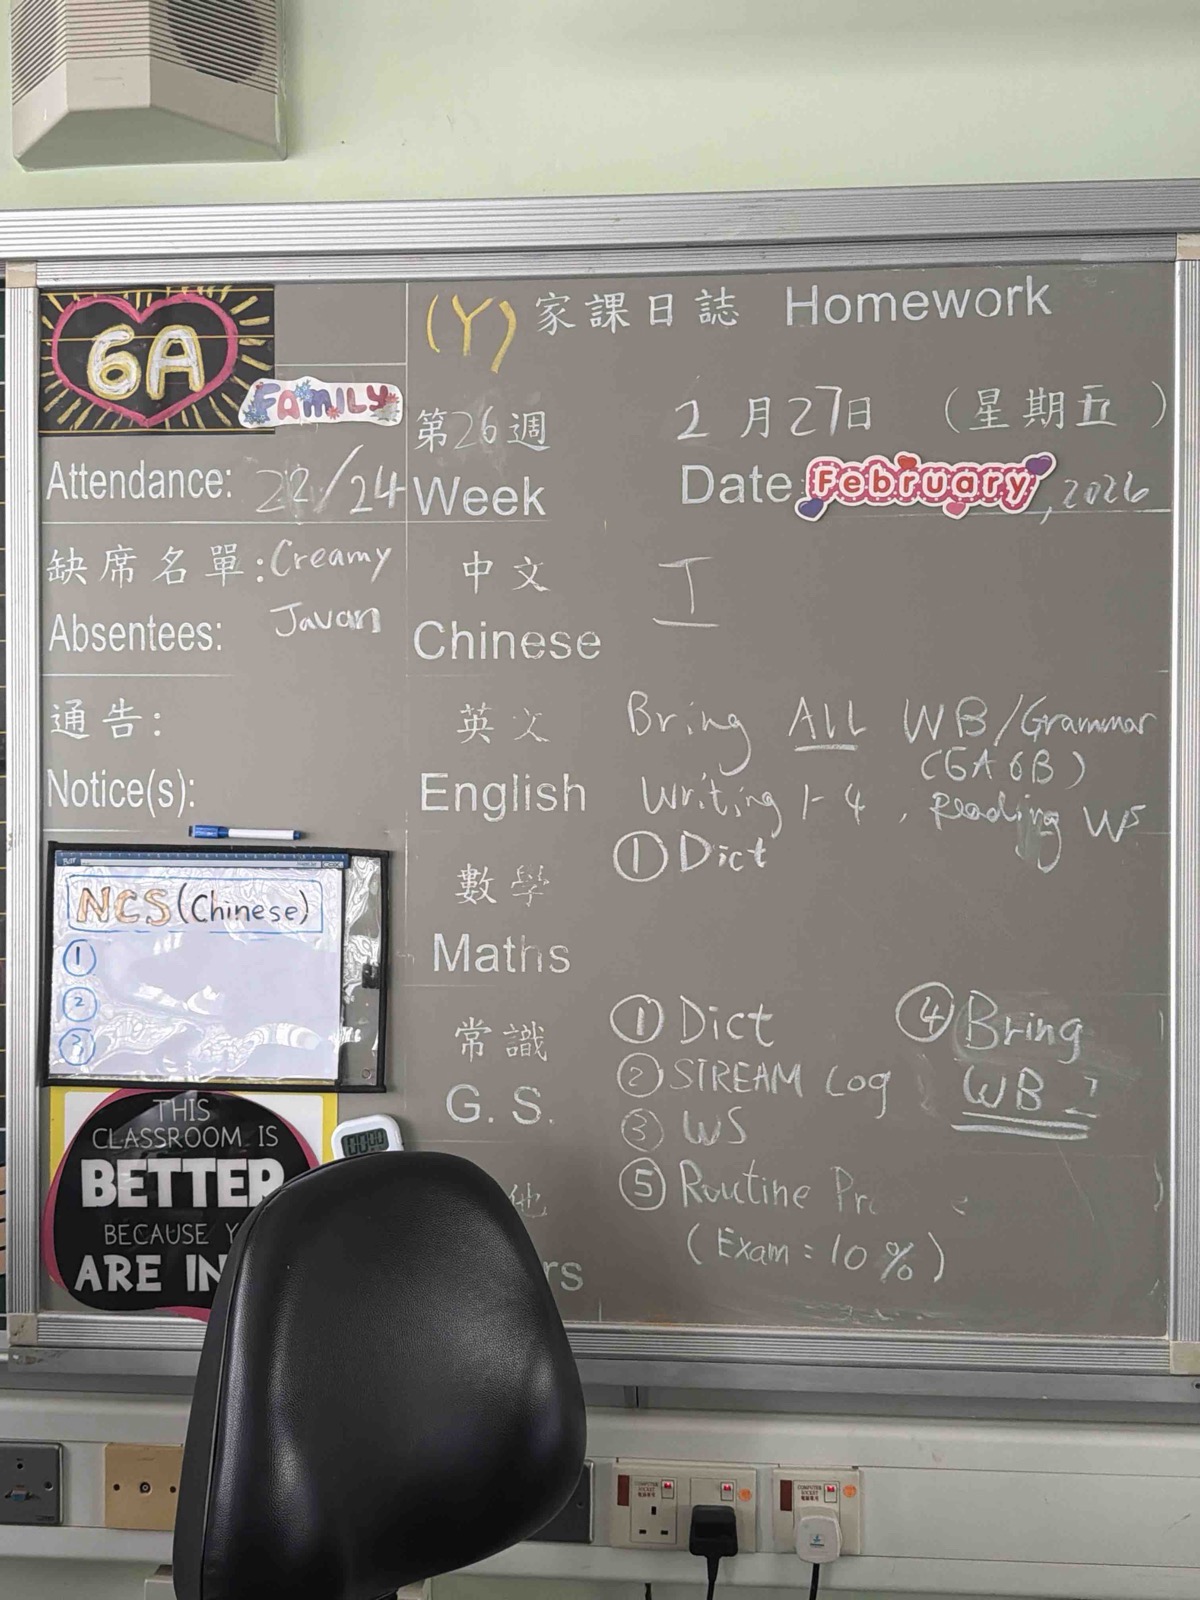 6A
FAMILY
(Y) 家課日誌 Homework
第26週 2月27日 (星期五)
Week Date: February, 2026
Attendance: 22/24
缺席名單: Creamy
Absentees: Javan
通告:
Notice(s):
中文
Chinese
英文 Bring ALL WB/Grammar
(6A6B)
English Writing 1-4, Reading WS
① Dict
數學
Maths
常識 ① Dict
② STREAM Log
G. S. ③ WS
④ Bring
WB
⑤ Routine
(Exam: 10%)
他
rs
NCS (Chinese)
①
②
③
THIS
CLASSROOM IS
BETTER
BECAUSE Y
ARE IN
00:00
COMPUTER
SOCKET
COMPUTER
SOCKET